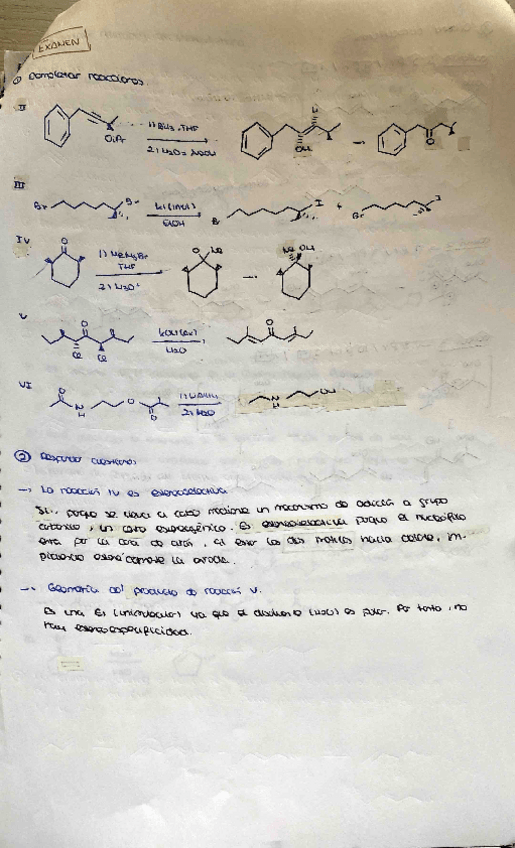 EXAMEN
① Completar reacciones.
II
OiPr
1) BH₃, THF
2) H₂O₂, NaOH
OH
O
III
Br
Br
KI (1mol)
EtOH
I
+
Br
I
IV
O
1) MeMgBr
THF
2) H₃O⁺
O Me
Me OH
V
O
Cl
Cl
KOH (ac)
H₂O
O
VI
O
N
H
O
O
2) H₂O
N
H
OH
② Responder cuestiones:
→ La reacción IV es estereoselectiva
Sí, porque se lleva a cabo mediante un mecanismo de adición a grupo
carbonilo, un centro estereogénico. Es estereoselectiva porque el nucleófilo
entra por la cara de atrás, al estar los dos metilos hacia delante, im-
pidiendo estéricamente la entrada.
→ Geometría del producto de reacción V.
Es una E1 (unimolecular) ya que el disolvente (H₂O) es polar. Por tanto, no
hay estereoespecificidad.